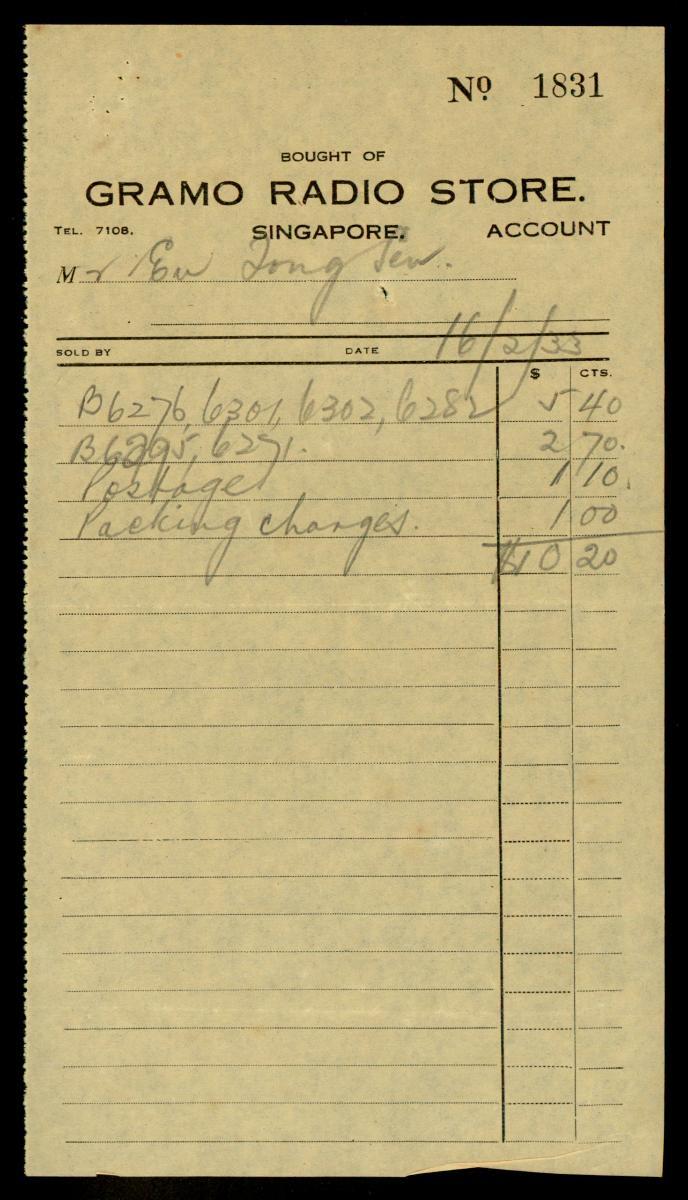 Nº 1831
BOUGHT OF
GRAMO RADIO STORE.
TEL. 7108. SINGAPORE. ACCOUNT
Mr Eu Tong Sen.
SOLD BY DATE 16/2/33
$ CTS.
B6276, 6301, 6302, 6282 5 40
B6295, 6271. 2 70.
Postage 1 10.
Packing charges. 1 00
$10 20